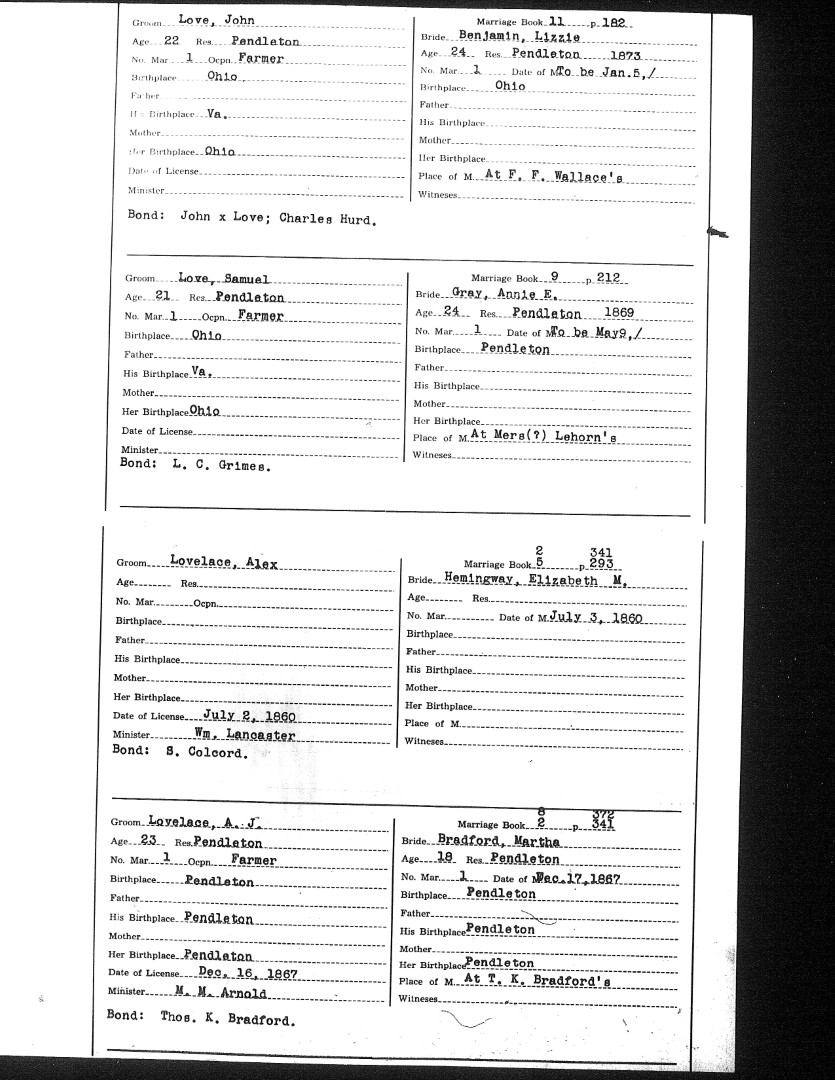 Groom Love, John
Age 22 Res. Pendleton
No. Mar. 1 Ocpn. Farmer
Birthplace Ohio
Father
His Birthplace Va.
Mother
Her Birthplace Ohio
Date of License
Minister
Marriage Book 11 p. 182
Bride Benjamin, Lizzie
Age 24 Res. Pendleton 1873
No. Mar. 1 Date of M. To be Jan.5,/
Birthplace Ohio
Father
His Birthplace
Mother
Her Birthplace
Place of M. At F. F. Wallace's
Witnesses
Bond: John x Love; Charles Hurd.
Groom Love, Samuel
Age 21 Res. Pendleton
No. Mar. 1 Ocpn. Farmer
Birthplace Ohio
Father
His Birthplace Va.
Mother
Her Birthplace Ohio
Date of License
Minister
Marriage Book 9 p. 212
Bride Gray, Annie E.
Age 24 Res. Pendleton 1869
No. Mar. 1 Date of M. To be May9,/
Birthplace Pendleton
Father
His Birthplace
Mother
Her Birthplace
Place of M. At Mers(?) Lehorn's
Witnesses
Bond: L. C. Grimes.
Groom Lovelace, Alex
Age Res.
No. Mar. Ocpn.
Birthplace
Father
His Birthplace
Mother
Her Birthplace
Date of License July 2, 1860
Minister Wm. Lancaster
2 341
Marriage Book 5 p. 293
Bride Hemingway, Elizabeth M.
Age Res.
No. Mar. Date of M. July 3, 1860
Birthplace
Father
His Birthplace
Mother
Her Birthplace
Place of M.
Witnesses
Bond: S. Colcord.
Groom Lovelace, A. J.
Age 23 Res. Pendleton
No. Mar. 1 Ocpn. Farmer
Birthplace Pendleton
Father
His Birthplace Pendleton
Mother
Her Birthplace Pendleton
Date of License Dec. 16, 1867
Minister M. M. Arnold
8 372
Marriage Book 2 p. 341
Bride Bradford, Martha
Age 18 Res. Pendleton
No. Mar. 1 Date of M. Dec.17,1867
Birthplace Pendleton
Father
His Birthplace Pendleton
Mother
Her Birthplace Pendleton
Place of M. At T. K. Bradford's
Witnesses
Bond: Thos. K. Bradford.